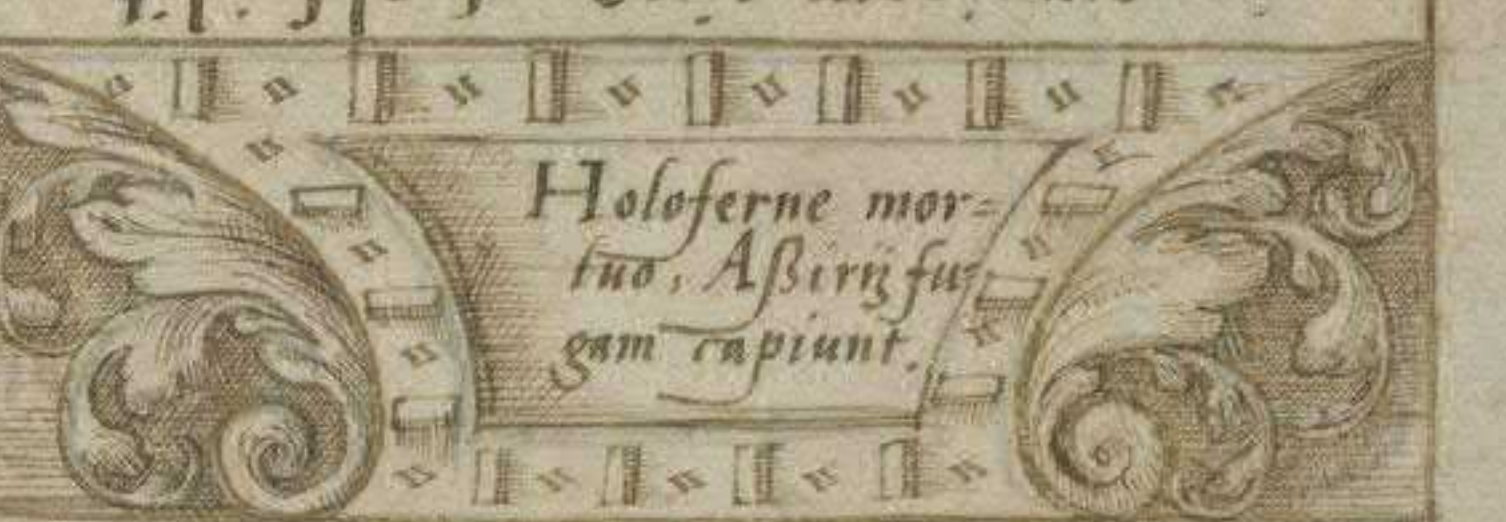 Holoferne mor=
tuo, Aßirij fu=
gam capiunt.